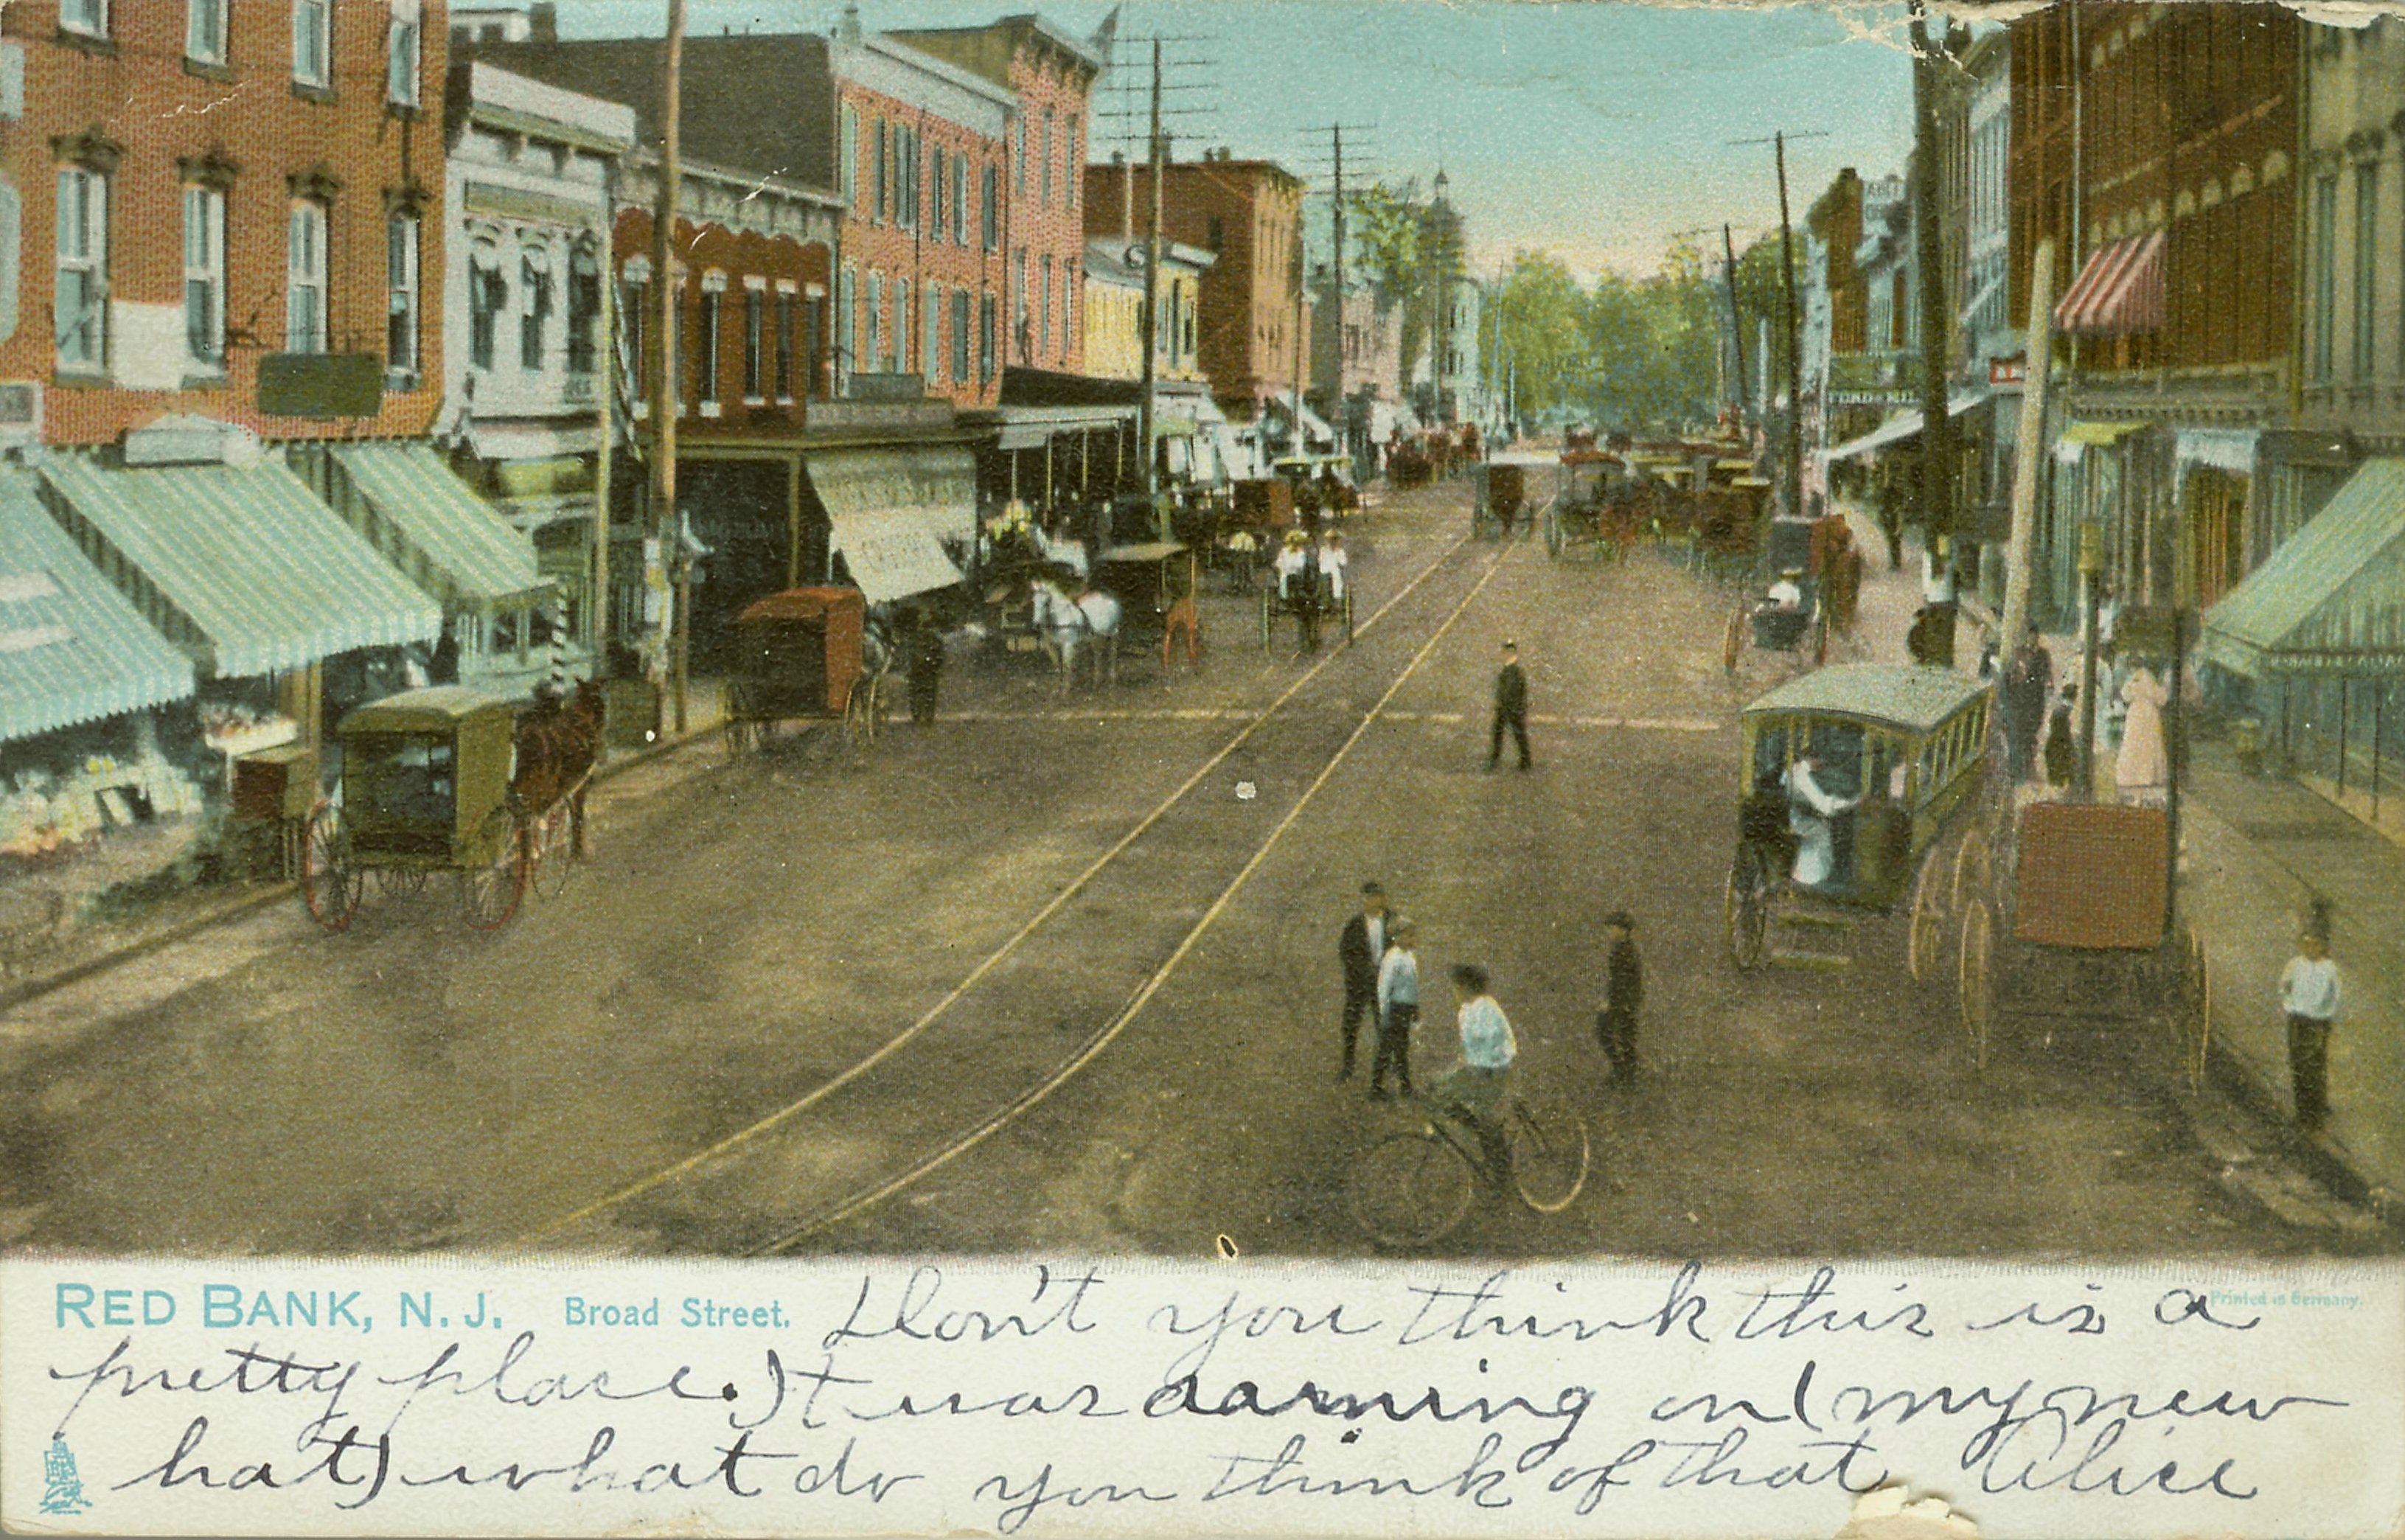 RED BANK, N. J. Broad Street.
Printed in Germany.
Don't you think this is a
pretty place. It was on (my new
hat) what do you think of that Alice